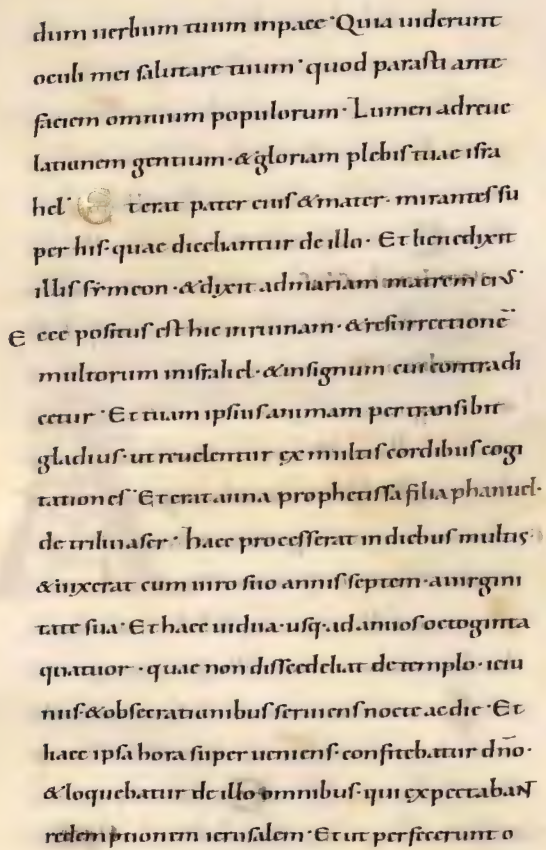 dum uerbum tuum inpace · Quia uiderunt
oculi mei salutare tuum · quod parasti ante
faciem omnium populorum · Lumen adreue
lationem gentium · & gloriam plebis tuae isra
hel · E t erat pater eius & mater · mirantes su
per his · quae dicebantur de illo · Et benedixit
illis symeon · & dixit admariam matrem eius ·
E cce positus est hic inruinam · & resurrectionē
multorum inisrahel · & insignum cui contradi
cetur · Et tuam ipsius animam pertransibit
gladius · ut reuelentur ex multis cordibus cogi
tationes · Et erat anna prophetissa filia phanuel ·
de tribu aser · haec processerat in diebus multis ·
& uixerat cum uiro suo annis septem · auirgini
tate sua · Et haec uidua · usq· ad annos octoginta
quatuor · quae non discedebat detemplo · ieiu
niis · & obsecrationibus seruiens nocte ac die · Et
haec ipsa hora superueniens · confitebatur dn̄o ·
& loquebatur de illo omnibus · qui expectabant
redemptionem ierusalem · Et ut perfecerunt o